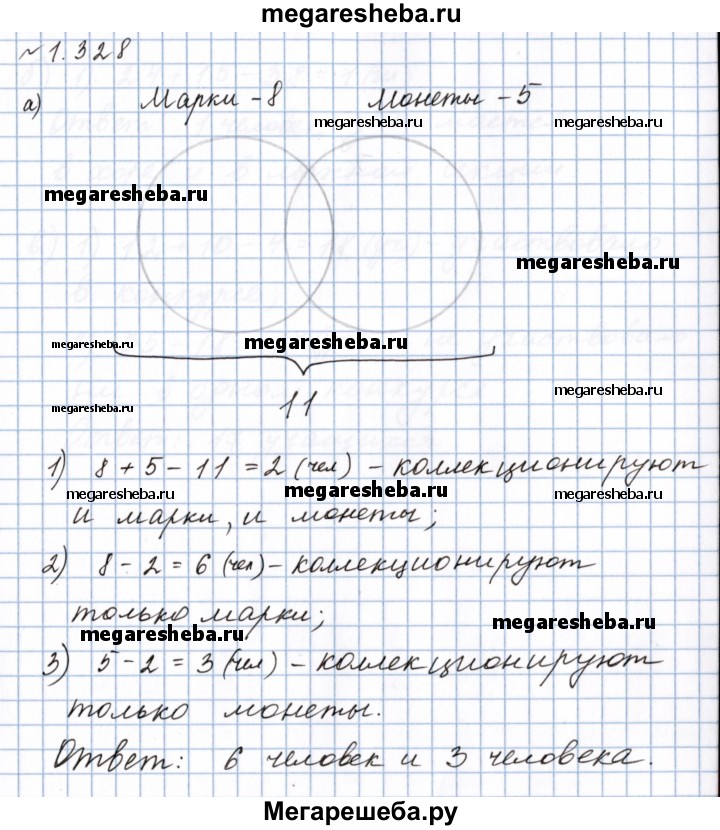 megaresheba.ru
№ 1.328
а) Марки - 8 Монеты - 5
megaresheba.ru megaresheba.ru
megaresheba.ru
megaresheba.ru
megaresheba.ru megaresheba.ru
megaresheba.ru
megaresheba.ru
11
1) 8 + 5 - 11 = 2 (чел) - коллекционируют
megaresheba.ru megaresheba.ru megaresheba.ru
и марки, и монеты;
2) 8 - 2 = 6 (чел) - коллекционируют
только марки;
megaresheba.ru megaresheba.ru
3) 5 - 2 = 3 (чел) - коллекционируют
только монеты.
Ответ: 6 человек и 3 человека.
Мегарешеба.ру